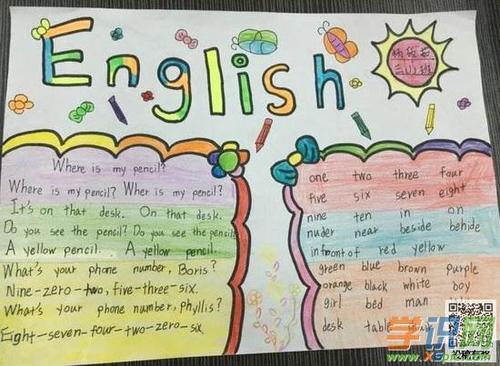 English
三(1)班
Where is my pencil?
Where is my pencil? Wher is my pencil?
It's on that desk. On that desk.
Do you see the pencil? Do you see the pencil
A yellow pencil. A yellow pencil.
What's your phone number, Boris?
Nine-zero-two, five-three-six.
What's your phone number, Phyllis?
Eight-seven-four-two-zero-six.
one two three four
five six seven eight
nine ten in on
nuder near beside behide
infrontof red yellow
green blue brown purple
orange black white boy
girl bed man
desk table
学识网